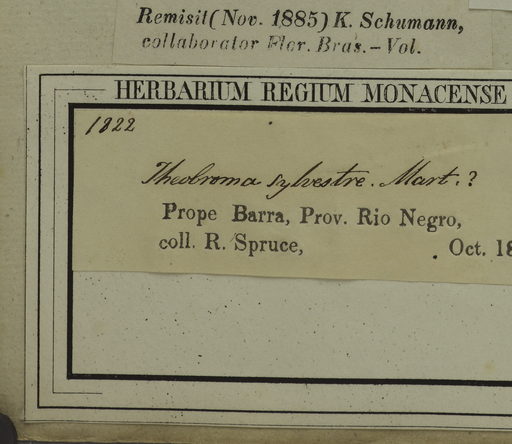 Remisit (Nov. 1885) K. Schumann,
collaborator Flor. Bras. - Vol.
HERBARIUM REGIUM MONACENSE
1822
Theobroma sylvestre. Mart.?
Prope Barra, Prov. Rio Negro,
coll. R. Spruce, Oct. 18